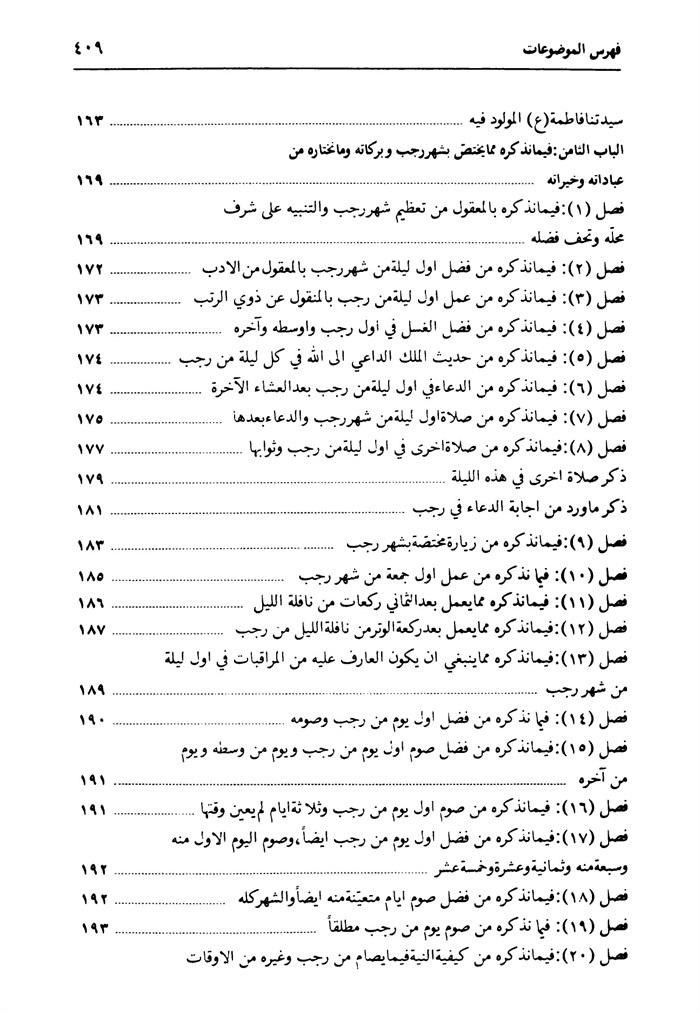 فهرس الموضوعات ٤٠٩
سيدتنا فاطمة (ع) المولود فيه ........ ١٦٣
الباب الثامن: فيما نذكره مما يختصّ بشهر رجب وبركاته وما نختاره من
عباداته وخيراته ........ ١٦٩
فصل (١): فيما نذكره بالمعقول من تعظيم شهر رجب والتنبيه على شرف
محلّه وتحف فضله ........ ١٦٩
فصل (٢): فيما نذكره من فضل اول ليلة من شهر رجب بالمعقول من الادب ........ ١٧٢
فصل (٣): فيما نذكره من عمل اول ليلة من رجب بالمنقول عن ذوي الرتب ........ ١٧٣
فصل (٤): فيما نذكره من فضل الغسل في اول رجب واوسطه وآخره ........ ١٧٣
فصل (٥): فيما نذكره من حديث الملك الداعي الى الله في كل ليلة من رجب ........ ١٧٤
فصل (٦): فيما نذكره من الدعاء في اول ليلة من رجب بعد العشاء الآخرة ........ ١٧٤
فصل (٧): فيما نذكره من صلاة اول ليلة من شهر رجب والدعاء بعدها ........ ١٧٥
فصل (٨): فيما نذكره من صلاة اخرى في اول ليلة من رجب وثوابها ........ ١٧٧
ذكر صلاة اخرى في هذه الليلة ........ ١٧٩
ذكر ماورد من اجابة الدعاء في رجب ........ ١٨١
فصل (٩): فيما نذكره من زيارة مختصّة بشهر رجب ........ ١٨٣
فصل (١٠): فيما نذكره من عمل اول جمعة من شهر رجب ........ ١٨٥
فصل (١١): فيما نذكره مما يعمل بعد الثماني ركعات من نافلة الليل ........ ١٨٦
فصل (١٢): فيما نذكره مما يعمل بعد ركعة الوتر من نافلة الليل من رجب ........ ١٨٧
فصل (١٣): فيما نذكره مما ينبغي ان يكون العارف عليه من المراقبات في اول ليلة
من شهر رجب ........ ١٨٩
فصل (١٤): فيما نذكره من فضل اول يوم من رجب وصومه ........ ١٩٠
فصل (١٥): فيما نذكره من فضل صوم اول يوم من رجب ويوم من وسطه ويوم
من آخره ........ ١٩١
فصل (١٦): فيما نذكره من صوم اول يوم من رجب وثلاثة ايام لم يعين وقتها ........ ١٩١
فصل (١٧): فيما نذكره من فضل اول يوم من رجب ايضاً، وصوم اليوم الاول منه
وسبعة منه وثمانية وعشرة وخمسة عشر ........ ١٩٢
فصل (١٨): فيما نذكره من فضل صوم ايام متعيّنة منه ايضاً والشهر كله ........ ١٩٢
فصل (١٩): فيما نذكره من صوم يوم من رجب مطلقاً ........ ١٩٣
فصل (٢٠): فيما نذكره من كيفية النية فيما يصام من رجب وغيره من الاوقات